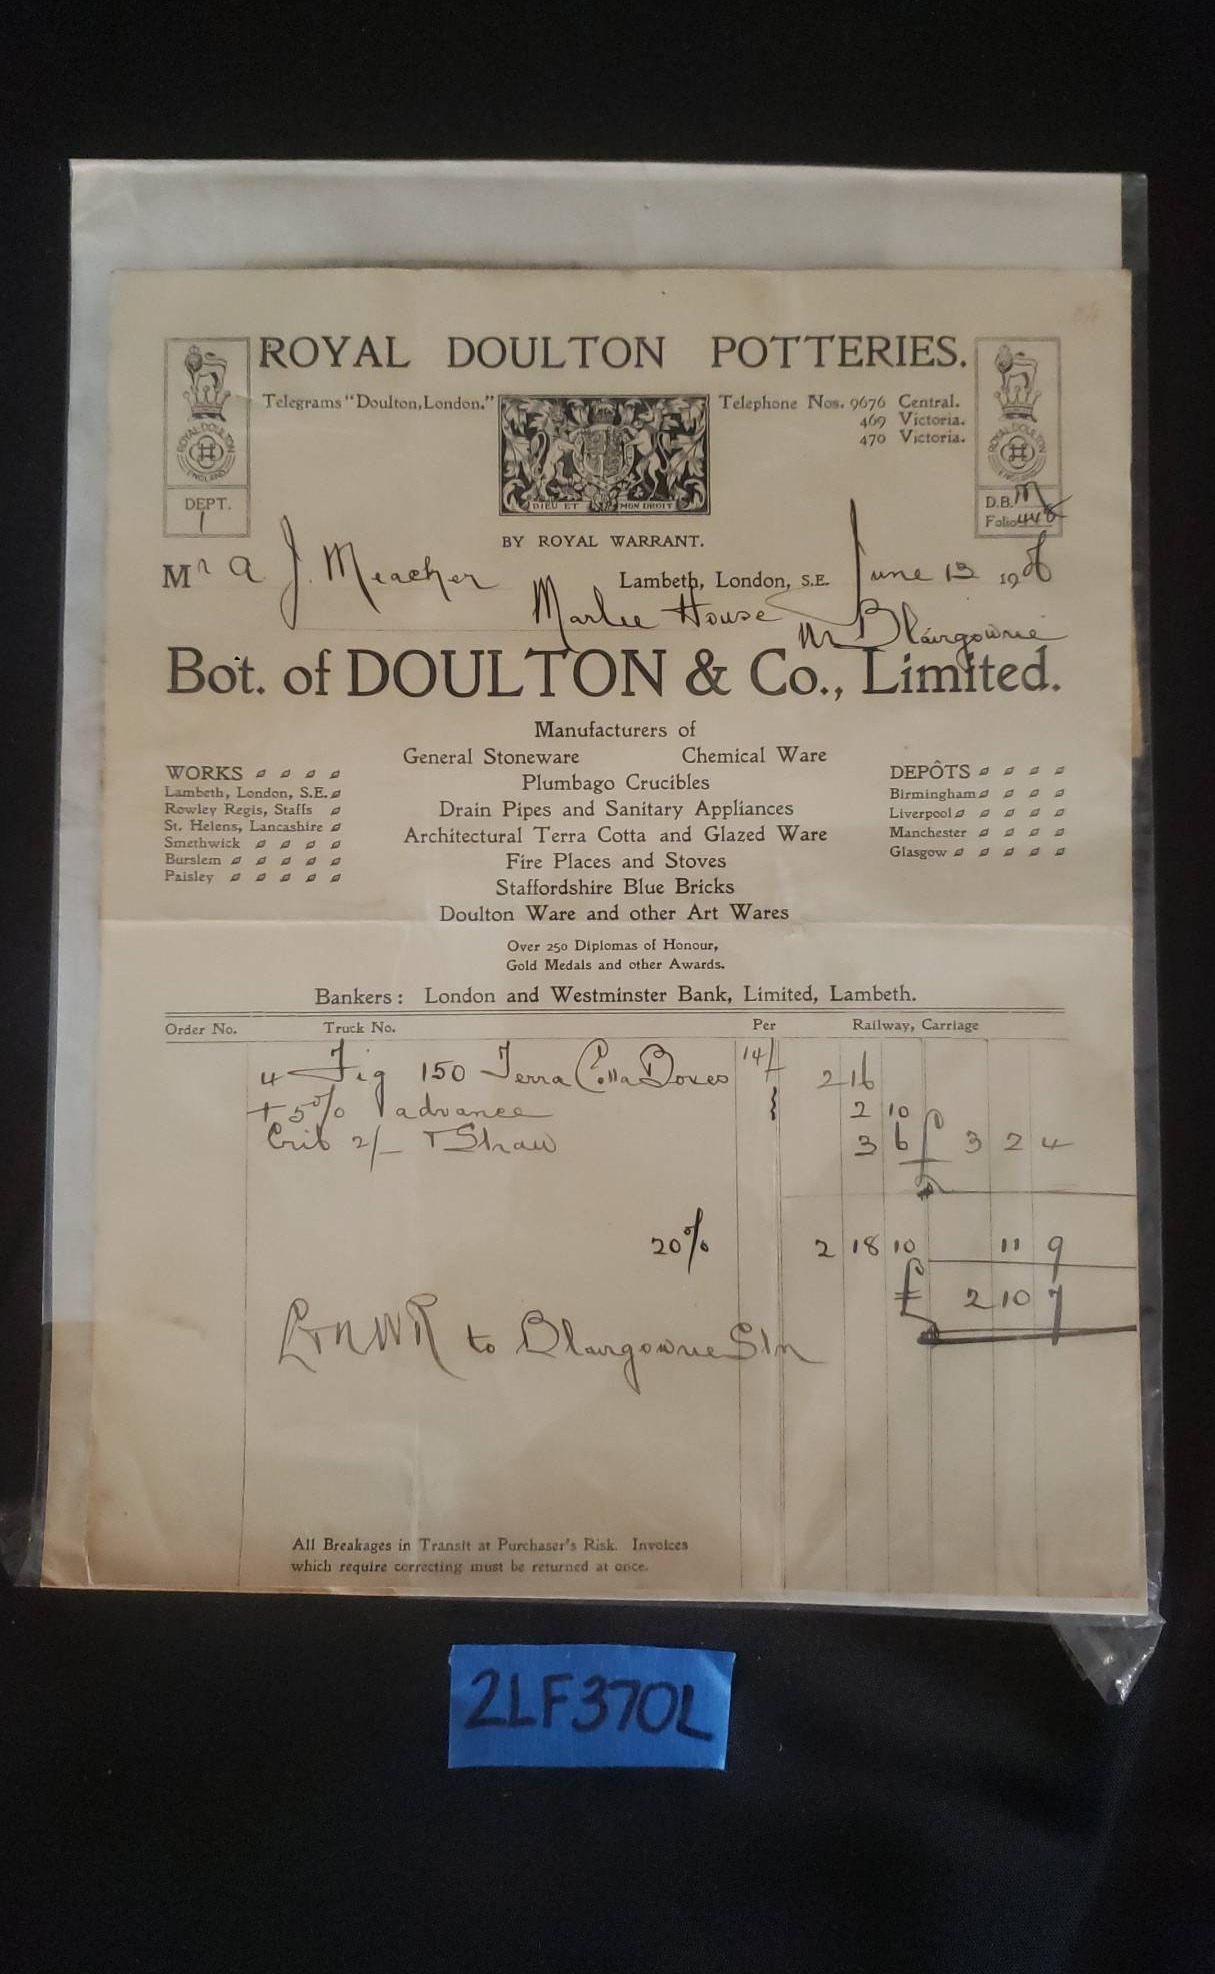 ROYAL DOULTON POTTERIES.
Telegrams "Doulton, London."
Telephone Nos. 9676 Central.
469 Victoria.
470 Victoria.
ROYAL DOULTON
ENGLAND
ROYAL DOULTON
ENGLAND
DIEU ET MON DROIT
DEPT.
1
D.B. M
Folio 448
BY ROYAL WARRANT.
Mr A J. Meacher
Lambeth, London, S.E. June 13 190
Marlee House
Nr Blairgowrie
Bot. of DOULTON & Co., Limited.
Manufacturers of
General Stoneware Chemical Ware
Plumbago Crucibles
Drain Pipes and Sanitary Appliances
Architectural Terra Cotta and Glazed Ware
Fire Places and Stoves
Staffordshire Blue Bricks
Doulton Ware and other Art Wares
WORKS
Lambeth, London, S.E.
Rowley Regis, Staffs
St. Helens, Lancashire
Smethwick
Burslem
Paisley
DEPÔTS
Birmingham
Liverpool
Manchester
Glasgow
Over 250 Diplomas of Honour,
Gold Medals and other Awards.
Bankers: London and Westminster Bank, Limited, Lambeth.
Order No. Truck No. Per Railway, Carriage
4 Fig 150 Terra Cotta Boxes 14/ 2 16
+ 5% advance 2 10
Crib 2/- + Straw 3 6 3 2 4
20% 2 18 10 11 9
£ 2 10 7
L+NWR to Blairgowrie Stn
All Breakages in Transit at Purchaser's Risk. Invoices
which require correcting must be returned at once.
2LF370L